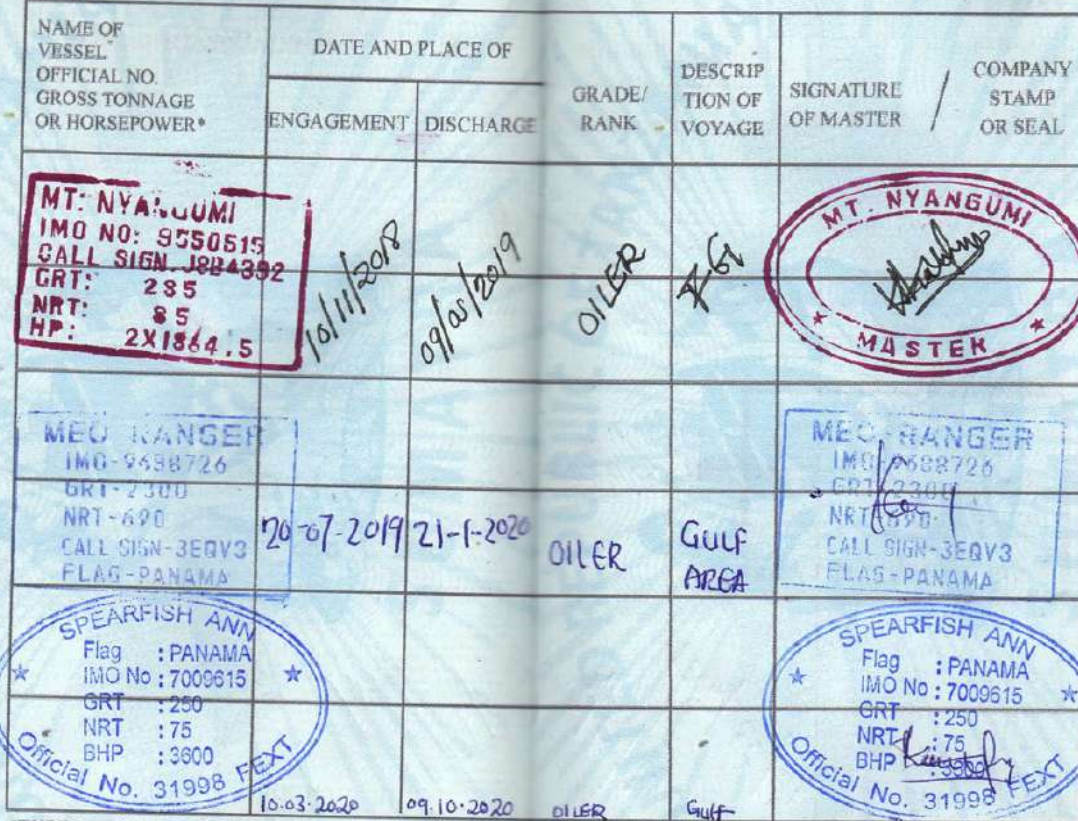 NAME OF
VESSEL
OFFICIAL NO.
GROSS TONNAGE
OR HORSEPOWER*
DATE AND PLACE OF
ENGAGEMENT
DISCHARGE
GRADE/
RANK
DESCRIP
TION OF
VOYAGE
SIGNATURE
OF MASTER
/
COMPANY
STAMP
OR SEAL
MT: NYANGUMI
IMO NO: 9550515
CALL SIGN. J8B4392
GRT: 285
NRT: 85
HP: 2X1864.5
10/11/2018
09/05/2019
OILER
F-G
MT. NYANGUMI
MASTER
MEO RANGER
IMO-9688726
GRT-2300
NRT-690
CALL SIGN-3EQV3
FLAG-PANAMA
20-07-2019
21-1-2020
OILER
GULF
AREA
MEO-RANGER
IMO-9688726
GRT-2300
NRT-690
CALL SIGN-3EQV3
FLAG-PANAMA
SPEARFISH ANN
Flag : PANAMA
IMO No : 7009615
GRT : 250
NRT : 75
BHP : 3600
Official No. 31998 FEXT
10.03.2020
09.10.2020
OILER
Gulf
SPEARFISH ANN
Flag : PANAMA
IMO No : 7009615
GRT : 250
NRT : 75
BHP : 3600
Official No. 31998 FEXT